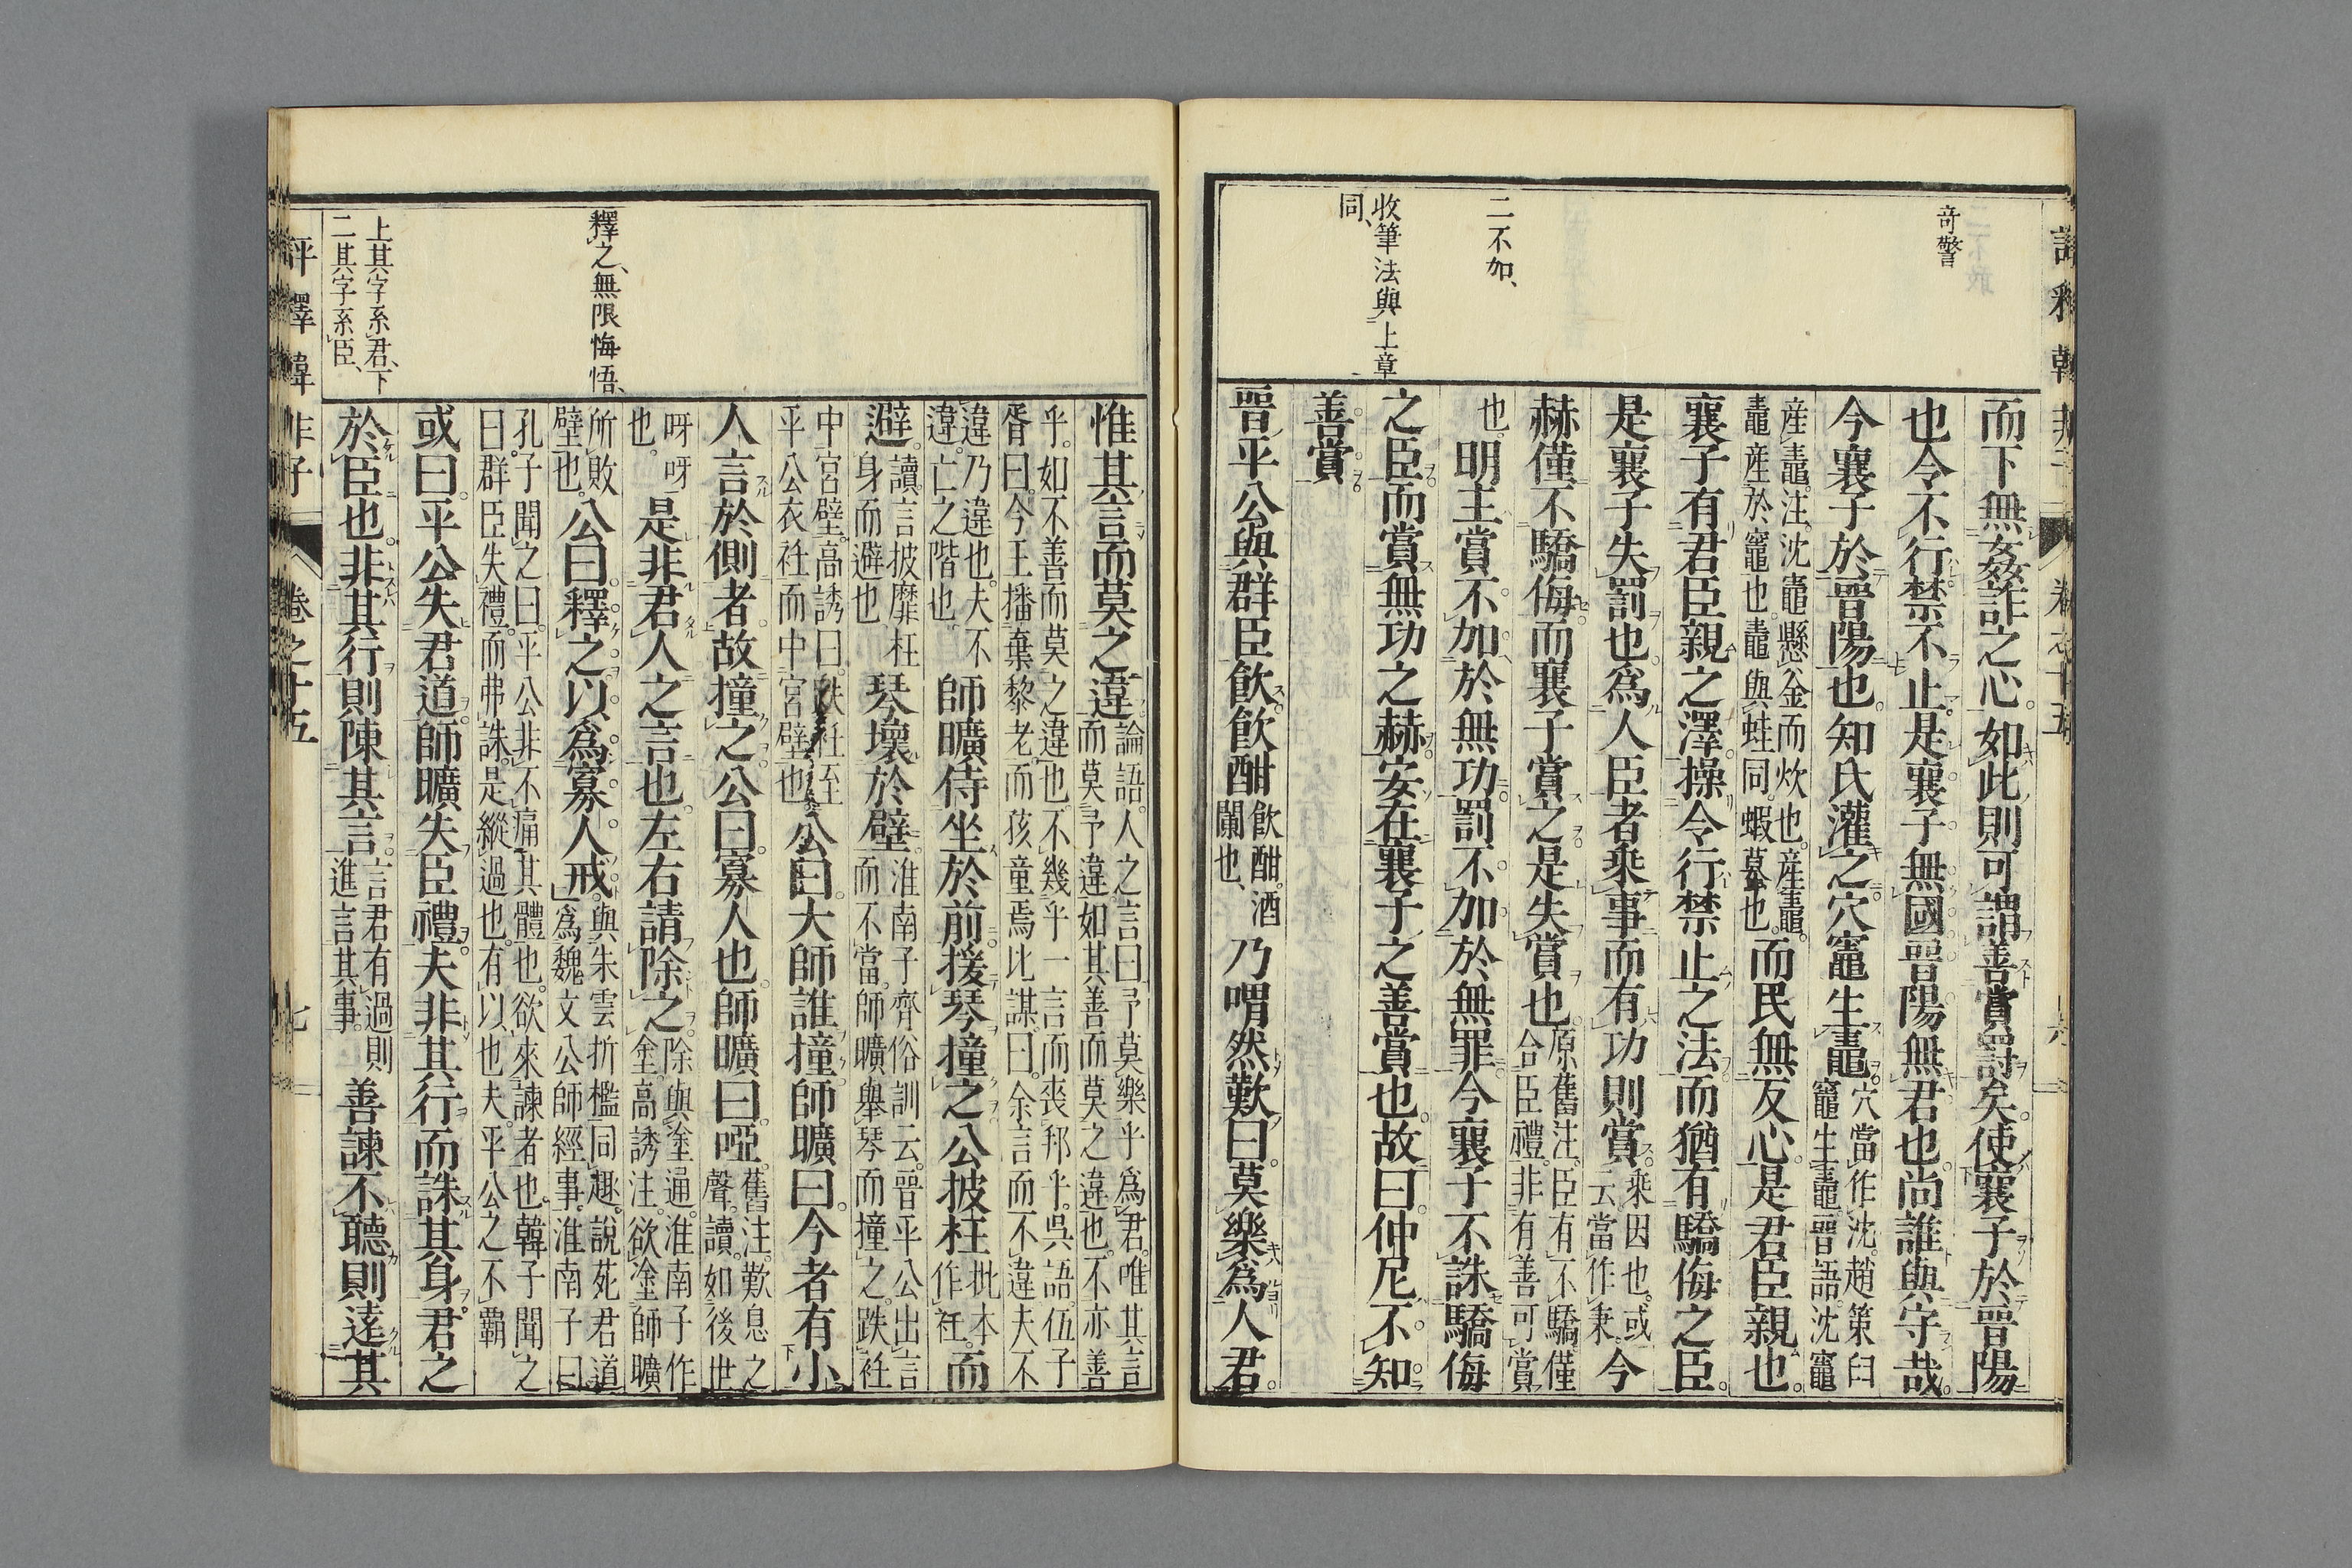 奇警
二不加、
收筆法與上章
同、
而下無姦詐之心。如此則可謂善賞罰矣。使襄子於晉陽
也令不行禁不止。是襄子無國晉陽無君也。尚誰與守哉。
今襄子於晉陽也。知氏灌之穴竈生鼃。穴當作沈。趙策臼竈生鼃。晉語沈竈
産鼃。注。沈竈懸釜而炊也。産鼃。鼃産於竈也。鼃與蛙同。蝦蟇也。而民無反心。是君臣親也。
襄子有君臣親之澤。操令行禁止之法。而猶有驕侮之臣。
是襄子失罰也。爲人臣者乘事而有功則賞。乘因也。或云當作秉。今
赫僅不驕侮。而襄子賞之。是失賞也。原舊注。臣有不驕僅合臣禮。非有善可賞
也。明主賞不加於無功。罰不加於無罪。今襄子不誅驕侮
之臣。而賞無功之赫。安在襄子之善賞也。故曰。仲尼不知
善賞。
晉平公與群臣飮。飮酣飮酣。酒闌也、乃喟然歎曰。莫樂爲人君。
評釋韓非子 卷之十五 七
釋之、無限悔悟、
上其字系君、下
二其字系臣、
惟其言而莫之違論語。人之言曰。予莫樂乎爲君。唯其言而莫予違。如其善而莫之違也。不亦善
乎。如不善而莫之違也。不幾乎一言而喪邦乎。呉語。伍子胥曰。今王播棄黎老。而孩童焉比謀。曰。余言而不違夫不
違乃違也。夫不違。亡之階也師曠侍坐於前。援琴撞之。公披衽批本作衽。而
避。讀。言披靡枉身而避也琴壞於壁。淮南子齊俗訓云。晉平公出言而不當。師曠舉琴而撞之。跌衽
中宮壁。高誘曰。跌衽至平公衣衽而中宮壁也公曰。大師誰撞。師曠曰。今者有小
人言於側者。故撞之。公曰。寡人也。師曠曰。啞。舊注。歎息之聲。讀。如後世
呀呀也。是非君人之言也。左右請除之。除與塗通。淮南子作塗。高誘注。欲塗師曠
所敗壁也。公曰。釋之。以爲寡人戒。與朱雲折檻同趣。說苑君道爲魏文公師經事。淮南子曰
孔子聞之曰。平公非不痛其體也。欲來諫者也。韓子聞之曰。群臣失禮。而弗誅。是縱過也。有以也夫。平公之不霸
或曰。平公失君道。師曠失臣禮。夫非其行而誅其身。君之
於臣也。非其行則陳其言。言君有過則進言其事。善諫不聽則遠其